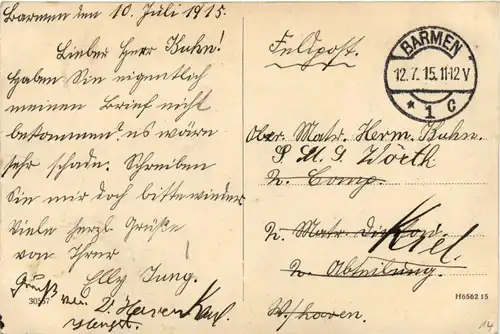 Barmen den 10. Juli 1915.
Lieber Herr Kuhn!
Haben Sie eigentlich
meinen Brief nicht
bekommen? es wäre
sehr schade. Schreiben
Sie mir doch bitte wieder
Viele herzl. Grüße
von Ihrer
Elly Jung.
Gruß
von
30557
Feldpost.
BARMEN
12. 7. 15. 11-12 V
* 1 C
Ober. Matr. Herm. Kuhn.
S. M. S. Wörth
2. Comp.
2. Matr. Division
Kiel.
2. Abteilung.
W/haven.
H6562 15
14